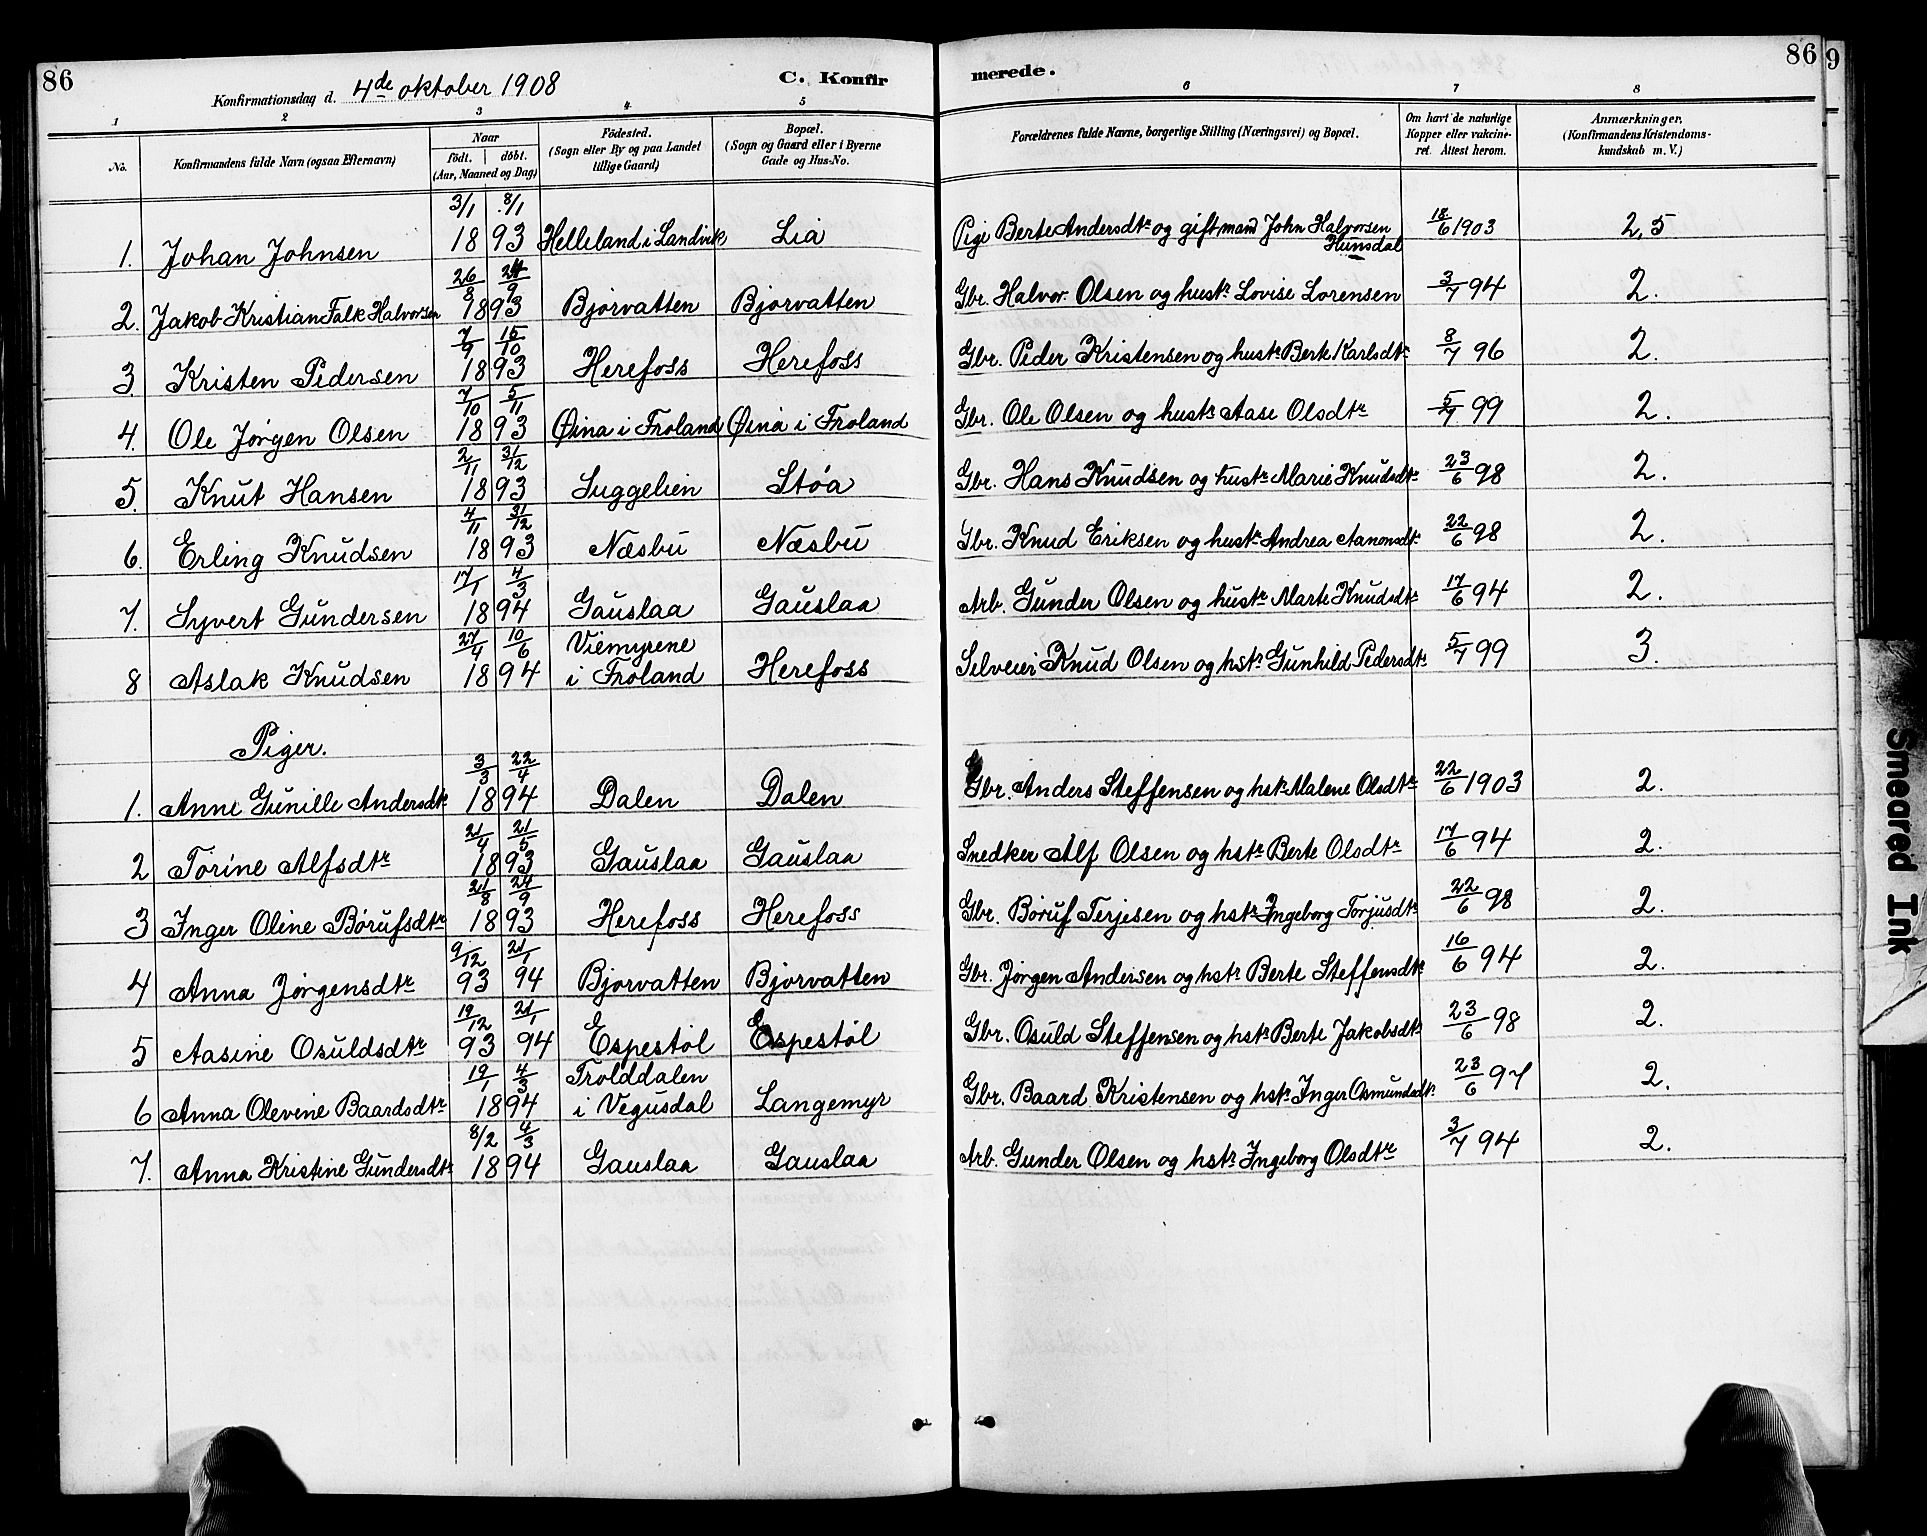 86
Konfirmationsdag d. 4de oktober 1908
C. Konfirmerede.
86
9
1 2 3 4 5 6 7 8
No. Konfirmandens fulde Navn (ogsaa Efternavn) Naar födt. döbt. (Aar, Maaned og Dag) Födested. (Sogn eller By og paa Landet tillige Gaard) Bopæl. (Sogn og Gaard eller i Byerne Gade og Hus-No. Forældrenes fulde Navne, borgerlige Stilling (Næringsvei) og Bopæl. Om havt de naturlige Kopper eller vakcineret. Attest herom. Anmærkninger. (Konfirmandens Kristendomskundskab m. V.)
1. Johan Johnsen 3/1 8/1 1893 Helleland i Landvik Lia Pige Berte Andersdtr og gift mand John Halvorsen Hunsdal 18/6 1903 2,5
2. Jakob Kristian Falk Halvorsen 26/8 24/9 1893 Bjorvatten Bjorvatten Gbr. Halvor Olsen og hustr Lovise Lorensen 3/7 94 2.
3. Kristen Pedersen 7/9 15/10 1893 Herefoss Herefoss Gbr. Peder Kristensen og hustr Berte Karlsdtr 8/7 96 2.
4. Ole Jørgen Olsen 7/10 5/11 1893 Øina i Froland Øina i Froland Gbr. Ole Olsen og hustr Aase Olsdtr 5/7 99 2.
5. Knut Hansen 2/11 31/12 1893 Suggelien Støa Gbr. Hans Knudsen og hustr Marie Knudsdtr 23/6 98 2.
6. Erling Knudsen 4/11 31/12 1893 Næsbu Næsbu Gbr. Knud Eriksen og hustr Andrea Aanonsdtr 22/6 98 2.
7. Syvert Gundersen 17/1 4/3 1894 Gauslaa Gauslaa Arb. Gunder Olsen og hustr Marte Knudsdtr 17/6 94 2.
8 Aslak Knudsen 27/4 10/6 1894 Viemyrene i Froland Herefoss Selveier Knud Olsen og hstr Gunhild Pedersdtr 5/7 99 3.
Piger.
1. Anne Gunille Andersdtr 3/3 22/4 1894 Dalen Dalen Gbr. Anders Steffensen og hstr Malene Olsdtr 22/6 1903 2.
2 Torine Alfsdtr 21/4 21/5 1893 Gauslaa Gauslaa Snedker Alf Olsen og hstr Berte Olsdtr 17/6 94 2.
3 Inger Oline Børufsdtr 21/8 24/9 1893 Herefoss Herefoss Gbr. Børuf Terjesen og hstr Ingeborg Torjusdtr 22/6 98 2.
4 Anna Jørgensdtr 9/12 21/1 93 94 Bjorvatten Bjorvatten Gbr. Jørgen Andersen og hstr Berte Steffensdtr 16/6 94 2.
5 Aasine Osuldsdtr 19/12 21/1 93 94 Espestøl Espestøl Gbr. Osuld Steffensen og hstr Berte Jakobsdtr 23/6 98 2.
6 Anna Olevine Baardsdtr 19/1 4/3 1894 Trolddalen i Vegusdal Langemyr Gbr. Baard Kristensen og hstr Inger Osmundsdtr 23/6 97 2.
7. Anna Kristine Gundersdtr 8/2 4/3 1894 Gauslaa Gauslaa Arb. Gunder Olsen og hstr Ingeborg Olsdtr 3/7 94 2.
Smeared Ink